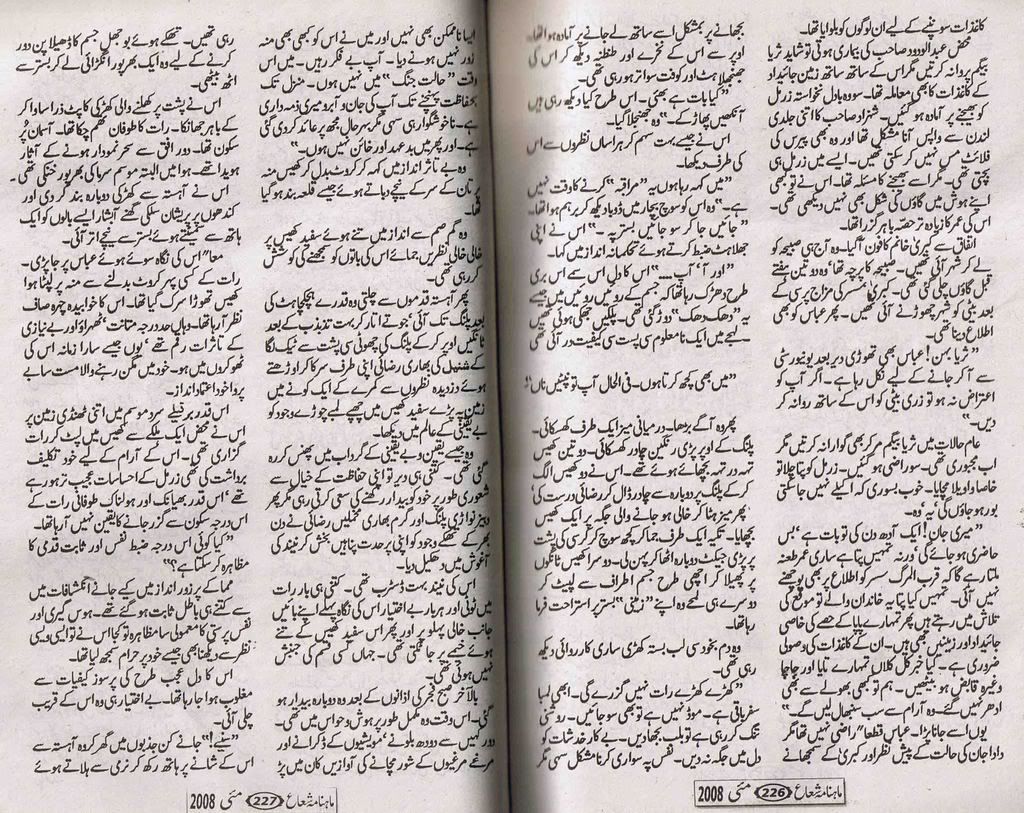 کاغذات سونپنے کے لیے ان لوگوں کو بلوایا تھا۔
محض عبدالودود صاحب کی بیماری ہوتی تو شاید ثریا
بیگم پروانہ کرتیں مگر اس کے ساتھ ساتھ زمین جائیداد
کے کاغذات کا بھی معاملہ تھا۔ سو وہ بادل نخواستہ زرمل
کو بھیجنے پر آمادہ ہو گئیں۔ شہزاد صاحب کا اتنی جلدی
لندن سے واپس آنا مشکل تھا اور وہ بھی پیرس کی
فلائٹ مس نہیں کر سکتی تھیں۔ ایسے میں زرمل ہی
بچتی تھی۔ مگر اسے بھیجنے کا مسئلہ تھا۔ اس نے تو بھی
اپنے ہوش میں گاؤں کی شکل بھی نہیں دیکھی تھی۔
اس کی عمر کا زیادہ تر حصہ باہر گزرا تھا۔
اتفاق سے کبریٰ خانم کا فون آ گیا۔ وہ آج ہی صبیحہ کو
لے کر شہر آئی تھیں۔ صبیحہ کا پرچہ تھا، وہ دو تین ہفتے
قبل گاؤں چلی گئی تھی۔ کبریٰ سسر کی مزاج پرسی کے
بعد بیٹی کو شہر چھوڑنے آئی تھیں۔ پھر عباس کو بھی
اطلاع دینا تھی۔
”ثریا بہن! عباس بھی تھوڑی دیر بعد یونیورسٹی
سے آ کر جانے کے لیے نکل رہا ہے۔ اگر آپ کو
اعتراض نہ ہو تو زری بیٹی کو اس کے ساتھ روانہ کر
دیں۔“
عام حالات میں ثریا بیگم مر کر بھی گوارا نہ کرتیں مگر
اب مجبوری تھی۔ سو راضی ہو گئیں۔ زرمل کو پتا چلا تو
خاصا واویلا مچایا۔ خوب بسوری کہ اکیلے نہیں جا سکتی
بور ہو جاؤں گی، یہ وہ۔
”میری جان! ایک آدھ دن کی تو بات ہے، بس
حاضری ہو جائے گی، ورنہ تمہیں پتا ہے ساری عمر طعنہ
ملتا رہے گا کہ قرب المرگ سسر کو اطلاع پر بھی پوچھنے
نہیں آئی۔ تمہیں کیا پتا یہ خاندان والے تو موقع کی
تلاش میں رہتے ہیں پھر تمہارے پاپا کے حصے کی خاصی
جائیداد اور زمینیں بھی ہیں۔ ان کے کاغذات کی وصولی
ضروری ہے۔ کیا خبر کل کلاں تمہارے تایا اور چاچا
وغیرہ قابض ہو بیٹھیں۔ ہم تو بھی بھولے سے بھی
ادھر نہیں گئے۔ وہ آرام سے سب سنبھال لیں گے۔“
یوں اسے جانا پڑا۔ عباس قطعاً راضی نہیں تھا مگر
دادا جان کی حالت کے پیش نظر اور کبریٰ کے سمجھانے
بجھانے پر بمشکل اسے ساتھ لے جانے پر آمادہ ہوا تھا۔
اوپر سے اس کے نخرے اور طنطنہ دیکھ کر اس کی
جھنجلاہٹ اور کوفت سوا تر ہو رہی تھی۔
”کیا بات ہے بھئی۔ اس طرح کیا دیکھ رہی ہیں
آنکھیں پھاڑ کے۔“ وہ جھنجلا گیا۔
اس نے جیسے بہت سہم کر ہراساں نظروں سے اس
کی طرف دیکھا۔
”میں کہہ رہا ہوں یہ ”مراقبہ“ کرنے کا وقت نہیں
ہے۔“ وہ اس کو سوچ بچار میں ڈوبا دیکھ کر برہم ہوا تھا۔
”جائیں جا کر سو جائیں بستر پہ۔“ اس نے اپنی
جھلاہٹ ضبط کرتے ہوئے تحکمانہ انداز میں کہا۔
”اور آ‘ آپ....“ اس کا دل اس سے اس بری
طرح دھڑک رہا تھا کہ جسم کے روئیں روئیں میں جیسے
یہ ”دھک دھک“ دوڑ گئی تھی۔ پلکیں جھکی ہوئی تھیں
لہجے میں ایک نامعلوم سی پست سی کیفیت در آئی تھی
”میں بھی کچھ کرتا ہوں۔ فی الحال آپ تو نپٹیں ناں!“
پھر وہ آگے بڑھا۔ درمیانی میز ایک طرف کھسکائی۔
پلنگ کے اوپر پڑی رنگین چادر کھسکائی۔ دو تین کھیس
تہہ در تہہ بچھائے ہوئے تھے۔ اس نے دو کھیس الگ
کر کے پلنگ پر دوبارہ سے چادر ڈال کر رضائی درست کی،
پھر میز ہٹا کر خالی ہو جانے والی جگہ پر ایک کھیس
بچھایا۔ تکیہ ایک طرف جما کر کچھ سوچ کر کرسی کی پشت
پر پڑی جیکٹ دوبارہ اٹھا کر پہن لی۔ دوسرا کھیس ٹانگوں
پر پھیلا کر اچھی طرح جسم اطراف سے لپیٹ کر
دوسرے ہی لمحے وہ اپنے ”زمینی“ بستر پر استراحت فرما
رہا تھا۔
وہ دم بخود سی لب بستہ کھڑی ساری کارروائی دیکھ
رہی تھی۔
”کھڑے کھڑے رات نہیں گزرے گی۔ ابھی لمبا
سفر باقی ہے۔ موڈ نہیں ہے تو بھی سو جائیں۔ روشنی
تنگ کر رہی ہے تو بلب بجھا دیں۔ بے کار خدشات کو
دل میں جگہ نہ دیں۔ نفس پہ سواری کرنا مشکل سہی مگر
ماہنامہ شعاع 226 مئی 2008
ایسا ناممکن بھی نہیں اور میں نے اس کو کبھی بھی منہ
زور نہیں ہونے دیا۔ آپ بے فکر رہیں۔ میں اس
وقت ”حالت جنگ“ میں نہیں ہوں۔ منزل تک
بحفاظت پہنچنے تک آپ کی جان و آبرو میری ذمہ داری
ہے۔ ناخوشگوار ہی سہی مگر بہرحال مجھ پر عائد کر دی گئی
ہے۔ اور پھر میں بد عہد اور خائن نہیں ہوں۔“
وہ بے تاثر انداز میں کہہ کر کروٹ بدل کر کھیس منہ
پر تان کے سر کے نیچے دباتے ہوئے جیسے قلعہ بند ہو گیا
تھا۔
وہ گم صم سے انداز میں تنے ہوئے سفید کھیس پر
خالی خالی نظریں جمائے اس کی باتوں کو سمجھنے کی کوشش
کر رہی تھی۔
پھر آہستہ قدموں سے چلتی وہ قدرے ہچکچاہٹ کی
بعد پلنگ تک آئی، جوتے اتار کر بہت تذبذب کے بعد
ٹانگیں اوپر کر کے پلنگ کی چھوٹی سی پشت سے ٹیک لگا
کے شنیل کی بھاری رضائی اپنی طرف سرکا کر اوڑھتے
ہوئے دزدیدہ نظروں سے کمرے کے ایک کونے میں
زمین پہ پڑے سفید کھیس میں چھپے لمبے چوڑے وجود کو
بے یقینی کے عالم میں دیکھا۔
وہ جیسے یقین و بے یقینی کے گرداب میں پھنس کر رہ
گئی تھی۔ کتنی ہی دیر تو اپنی حفاظت کے خیال سے
شعوری طور پر خود کو بیدار رکھنے کی سعی کرتی رہی مگر پھر
دبیز نواڑی پلنگ اور گرم بھاری مخملیں رضائی نے دن
بھر کے تھکے وجود کو اپنی پر حدت پناہیں بخش کر نیند کی
آغوش میں دھکیل دیا۔
اس کی نیند بہت ڈسٹرب تھی۔ کتنی ہی بار رات
میں ٹوٹی اور ہر بار بے اختیار اس کی نگاہ پہلے اپنے بائیں
جانب خالی پہلو پر اور پھر اس سفید کھیس کے تنے
ہوئے خیمے پر جا ٹکتی تھی۔ جہاں کسی قسم کی جنبش
نہیں ہوتی تھی۔
بالآخر صبح فجر کی اذانوں کے بعد وہ دوبارہ بیدار ہو
گئی۔ اس وقت وہ مکمل طور پر ہوش و حواس میں تھی۔
دور کہیں سے دودھ بلونے، مویشیوں کے ڈکرانے اور
مرغے مرغیوں کے شور مچانے کی آوازیں کان میں پڑ
رہی تھیں۔ تھکے ہوئے بوجھل جسم کا ڈھیلا پن دور
کرنے کے لیے وہ ایک بھرپور انگڑائی لے کر بستر سے
اٹھ بیٹھی۔
اس نے پشت پر کھلنے والی کھڑکی کا پٹ ذرا سا وا کر
کے باہر جھانکا۔ رات کا طوفان تھم چکا تھا۔ آسمان پر
سکون تھا۔ دور افق سے سحر نمودار ہونے کے آثار
ہویدا تھے۔ ہوا میں البتہ موسم سرما کی بھرپور خنکی تھی۔
اس نے آہستہ سے کھڑکی دوبارہ بند کر دی اور
کندھوں پر پریشان سلکی گھنے آبشار ایسے بالوں کو ایک
ہاتھ سے سمیٹتے ہوئے بستر سے نیچے اتر آئی۔
معاً اس کی نگاہ سوئے ہوئے عباس پر جا پڑی۔
رات کے کسی پہر کروٹ بدلنے سے منہ پر لپٹا ہوا
کھیس تھوڑا سرک گیا تھا۔ اس کا خوابیدہ چہرہ صاف
نظر آ رہا تھا۔ وہاں حد درجہ متانت، ٹھہراؤ اور بے نیازی
کے تاثرات رقم تھے، یوں جیسے سارا زمانہ اس کی
ٹھوکروں میں ہو۔ خود میں مگن رہنے والا مست سا بے
پروا خود اعتماد انداز۔
اس قدر برفیلے سرد موسم میں اتنی ٹھنڈی زمین پر
اس نے محض ایک ہلکے سے کھیس میں لپٹ کر رات
گزاری تھی۔ اس کے آرام کے لیے خود تکلیف
برداشت کی تھی زرمل کے احساسات عجیب تر ہو رہے
تھے، اس قدر بھیانک اور ہولناک طوفانی رات کے
اس درجہ سکون سے گزر جانے کا یقین نہیں آ رہا تھا۔
”کیا کوئی اس درجہ ضبط نفس اور ثابت قدمی کا
مظاہرہ کر سکتا ہے؟“
مما کے پر زور انداز میں کیے جانے انکشافات میں
سے کتنے ہی باطل ثابت ہو گئے تھے۔ ہوس گیری اور
نفس پرستی کا معمولی سا مظاہرہ تو کیا اس نے تو ایسی ویسی
نظر سے دیکھنا بھی جیسے خود پر حرام سمجھ لیا تھا۔
اس کا دل عجب طرح کی پر سوز کیفیات سے
مغلوب ہوا جا رہا تھا۔ بے اختیار ہی وہ اس کے قریب
چلی آئی۔
”سنیے!“ جانے کن جذبوں میں گھر کر وہ آہستہ سے
اس کے شانے پر ہاتھ رکھ کر نرمی سے ہلاتے ہوئے
ماہنامہ شعاع 227 مئی 2008